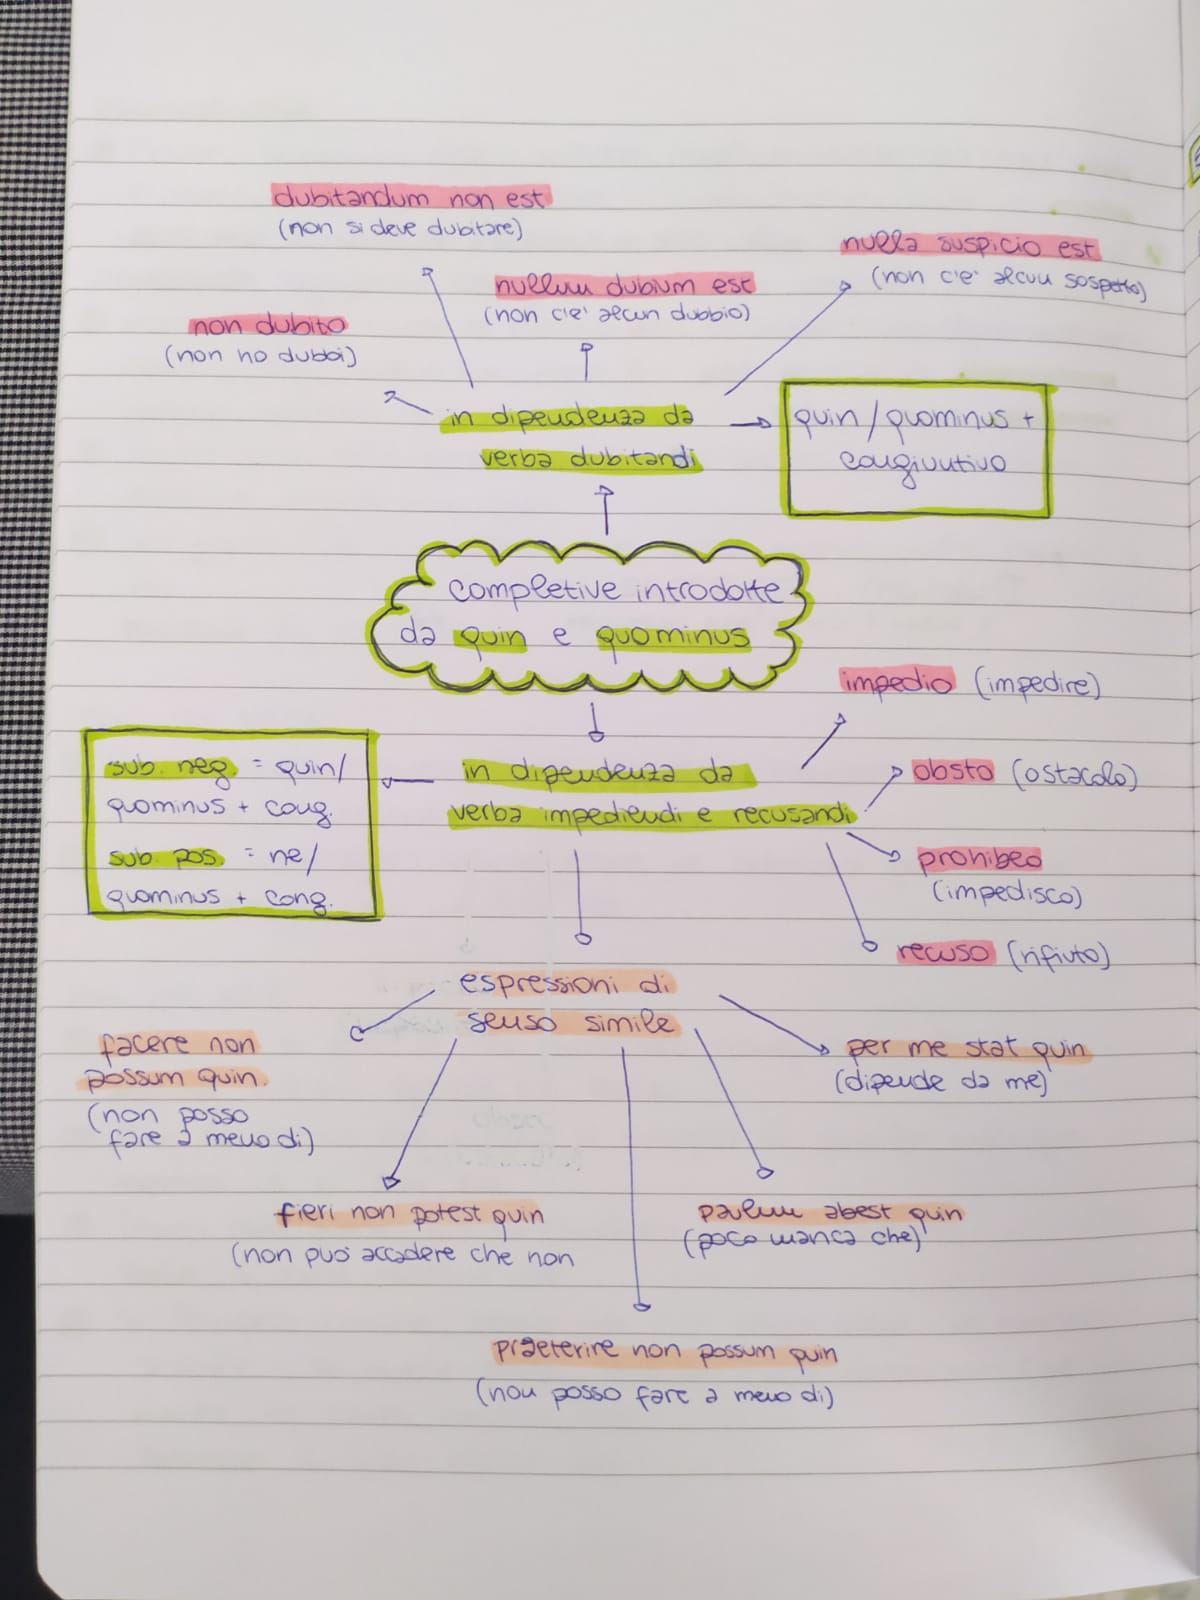 dubitandum non est
(non si deve dubitare)
nulla suspicio est
(non c'e' alcun sospetto)
nullum dubium est
(non c'e' alcun dubbio)
non dubito
(non ho dubbi)
in dipendenza da
verba dubitandi
quin / quominus +
congiuntivo
completive introdotte
da quin e quominus
impedio (impedire)
sub. neg. = quin/
quominus + cong.
sub. pos. = ne/
quominus + cong.
in dipendenza da
verba impediendi e recusandi
obsto (ostacolo)
prohibeo
(impedisco)
recuso (rifiuto)
espressioni di
senso simile
facere non
possum quin.
(non posso
fare a meno di)
per me stat quin
(dipende da me)
fieri non potest quin
(non puo' accadere che non
paulum abest quin
(poco manca che)
praeterire non possum quin
(non posso fare a meno di)